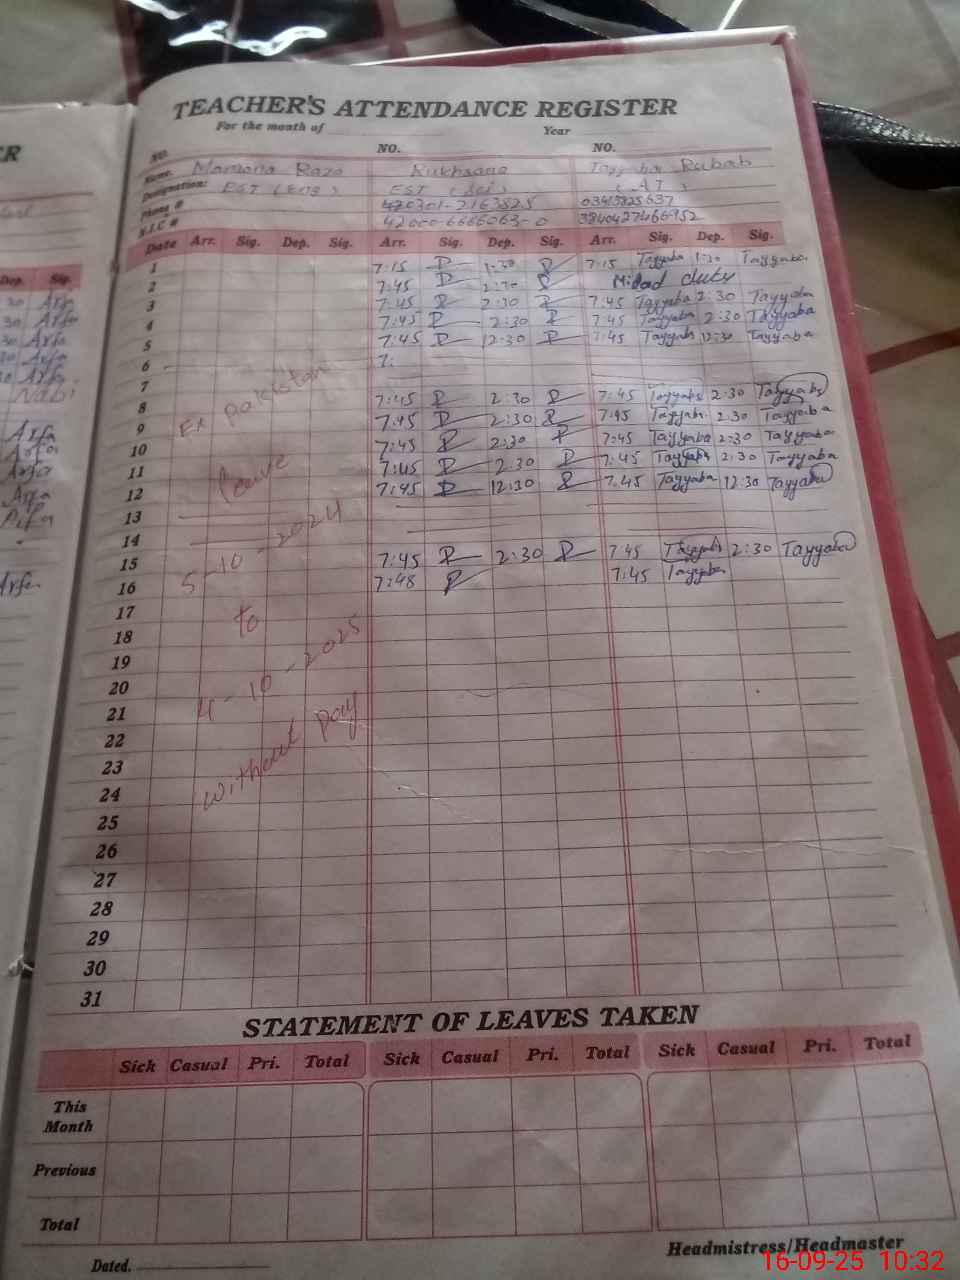 TEACHER'S ATTENDANCE REGISTER
For the month of Year
NO. NO. NO.
Name. Mamona Raza Rukhsana Tayyaba Rubab
Designation: EST (Eng) EST (Sci) (AT)
Phone # 0301-2163525 03413825637
N.I.C # 42000-6666063-0
Date Arr. Sig. Dep. Sig. Arr. Sig. Dep. Sig. Arr. Sig. Dep. Sig.
1 7:15 R 1:30 R 7:15 Tayyaba 1:30 Tayyaba
2 7:45 R 2:30 R Milad duty
3 7:45 R 2:30 R 7:45 Tayyaba 2:30 Tayyaba
4 7:45 R 2:30 R 7:45 Tayyaba 2:30 Tayyaba
5 7:45 R 12:30 R 7:45 Tayyaba 12:30 Tayyaba
6 7:
7
8 7:45 R 2:30 R 7:45 Tayyaba 2:30 Tayyaba
9 7:45 R 2:30 R 7:45 Tayyaba 2:30 Tayyaba
10 7:45 R 2:30 R 7:45 Tayyaba 2:30 Tayyaba
11 7:45 R 2:30 R 7:45 Tayyaba 2:30 Tayyaba
12 7:45 R 12:30 R 7:45 Tayyaba 12:30 Tayyaba
13
14
15 7:45 R 2:30 R 7:45 Tayyaba 2:30 Tayyaba
16 7:48 R 7:45 Tayyaba
17
18
19
20
21
22
23
24
25
26
27
28
29
30
31
Ex Pakistan
leave
5-10-2024
to
4-10-2025
without pay
STATEMENT OF LEAVES TAKEN
Sick Casual Pri. Total Sick Casual Pri. Total Sick Casual Pri. Total
This Month
Previous
Total
Headmistress/Headmaster
Dated.
16-09-25 10:32
ER
Dep. Sig.
30 Arfa
30 Arfa
30 Arfa
30 Arfa
30 Arfa
Nabi
Arfa
Arfa
Arfa
Arfa
Arfa
Arfa